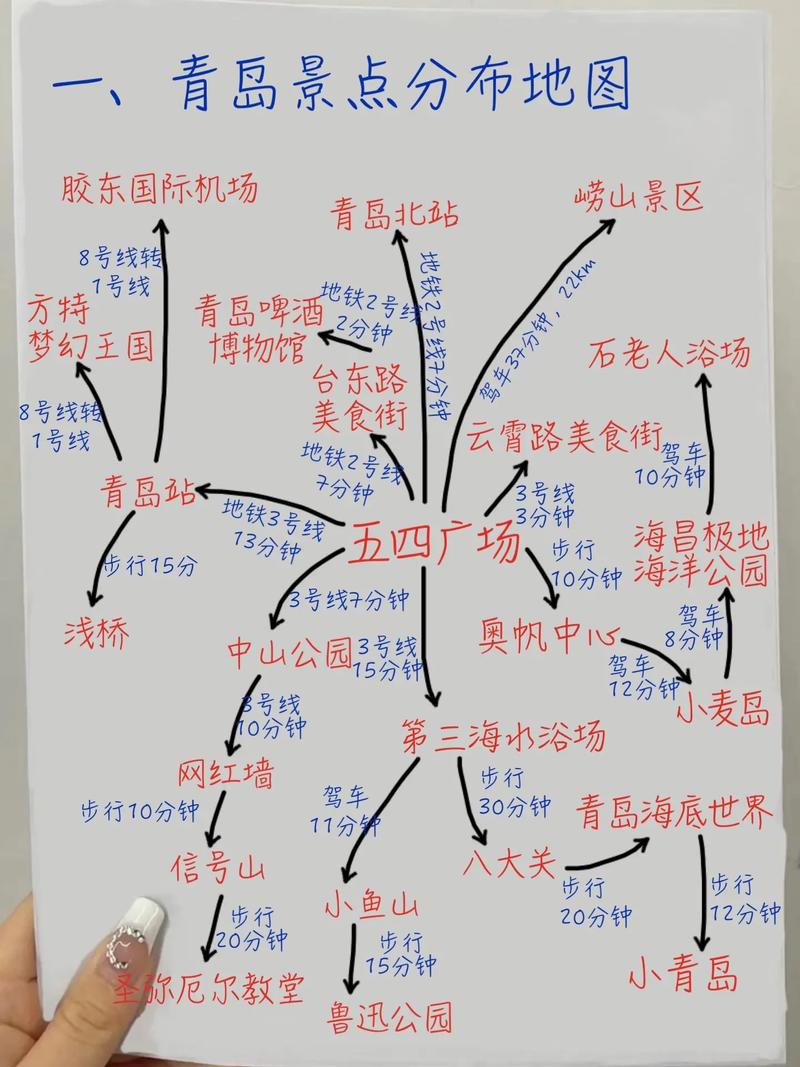 一、青岛景点分布地图
胶东国际机场
青岛北站
崂山景区
8号线转
1号线
地铁2号线7分钟
驾车37分钟，22km
方特
梦幻王国
青岛啤酒
博物馆
地铁2号线
2分钟
台东路
美食街
石老人浴场
8号线转
1号线
地铁2号线
7分钟
云霄路美食街
驾车
10分钟
青岛站
地铁3号线
13分钟
3号线
3分钟
五四广场
海昌极地
海洋公园
步行15分
步行
10分钟
浅桥
3号线7分钟
中山公园
3号线
15分钟
奥帆中心
驾车
8分钟
驾车
12分钟
小麦岛
3号线
10分钟
第三海水浴场
网红墙
驾车
11分钟
步行
30分钟
步行10分钟
青岛海底世界
信号山
八大关
步行
20分钟
步行
12分钟
小鱼山
步行
20分钟
步行
15分钟
小青岛
圣弥厄尔教堂
鲁迅公园